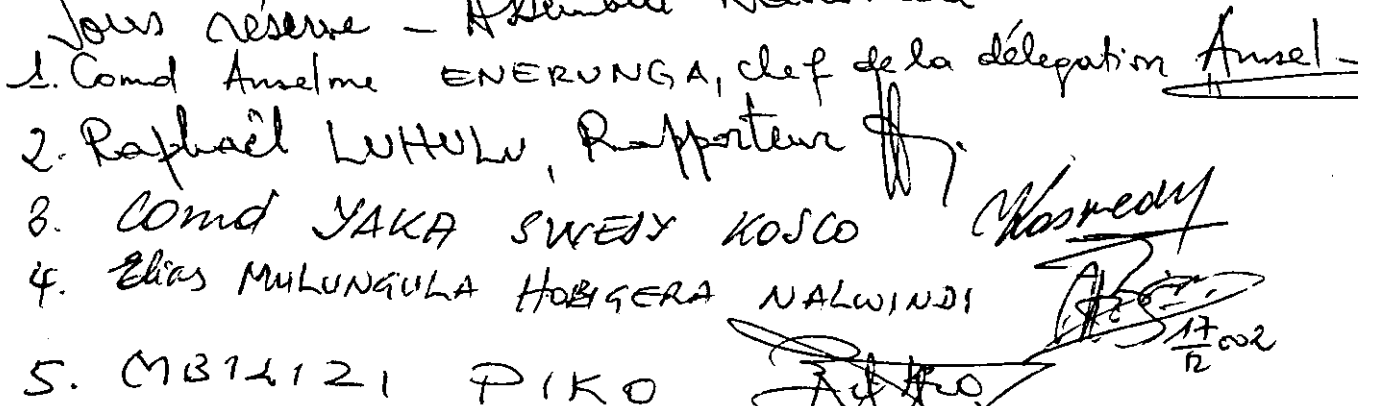 Sous réserve - Assemblée Nationale
1. Comd Anselme ENERUNGA, chef de la délégation Ansel-
2. Raphaël LUHULU, Rapporteur
3. Comd YAKA SWEDY KOSCO
4. Elias MULUNGULA HOBIGERA NALWINDI
17/12 002
5. MBILIZI PIKO